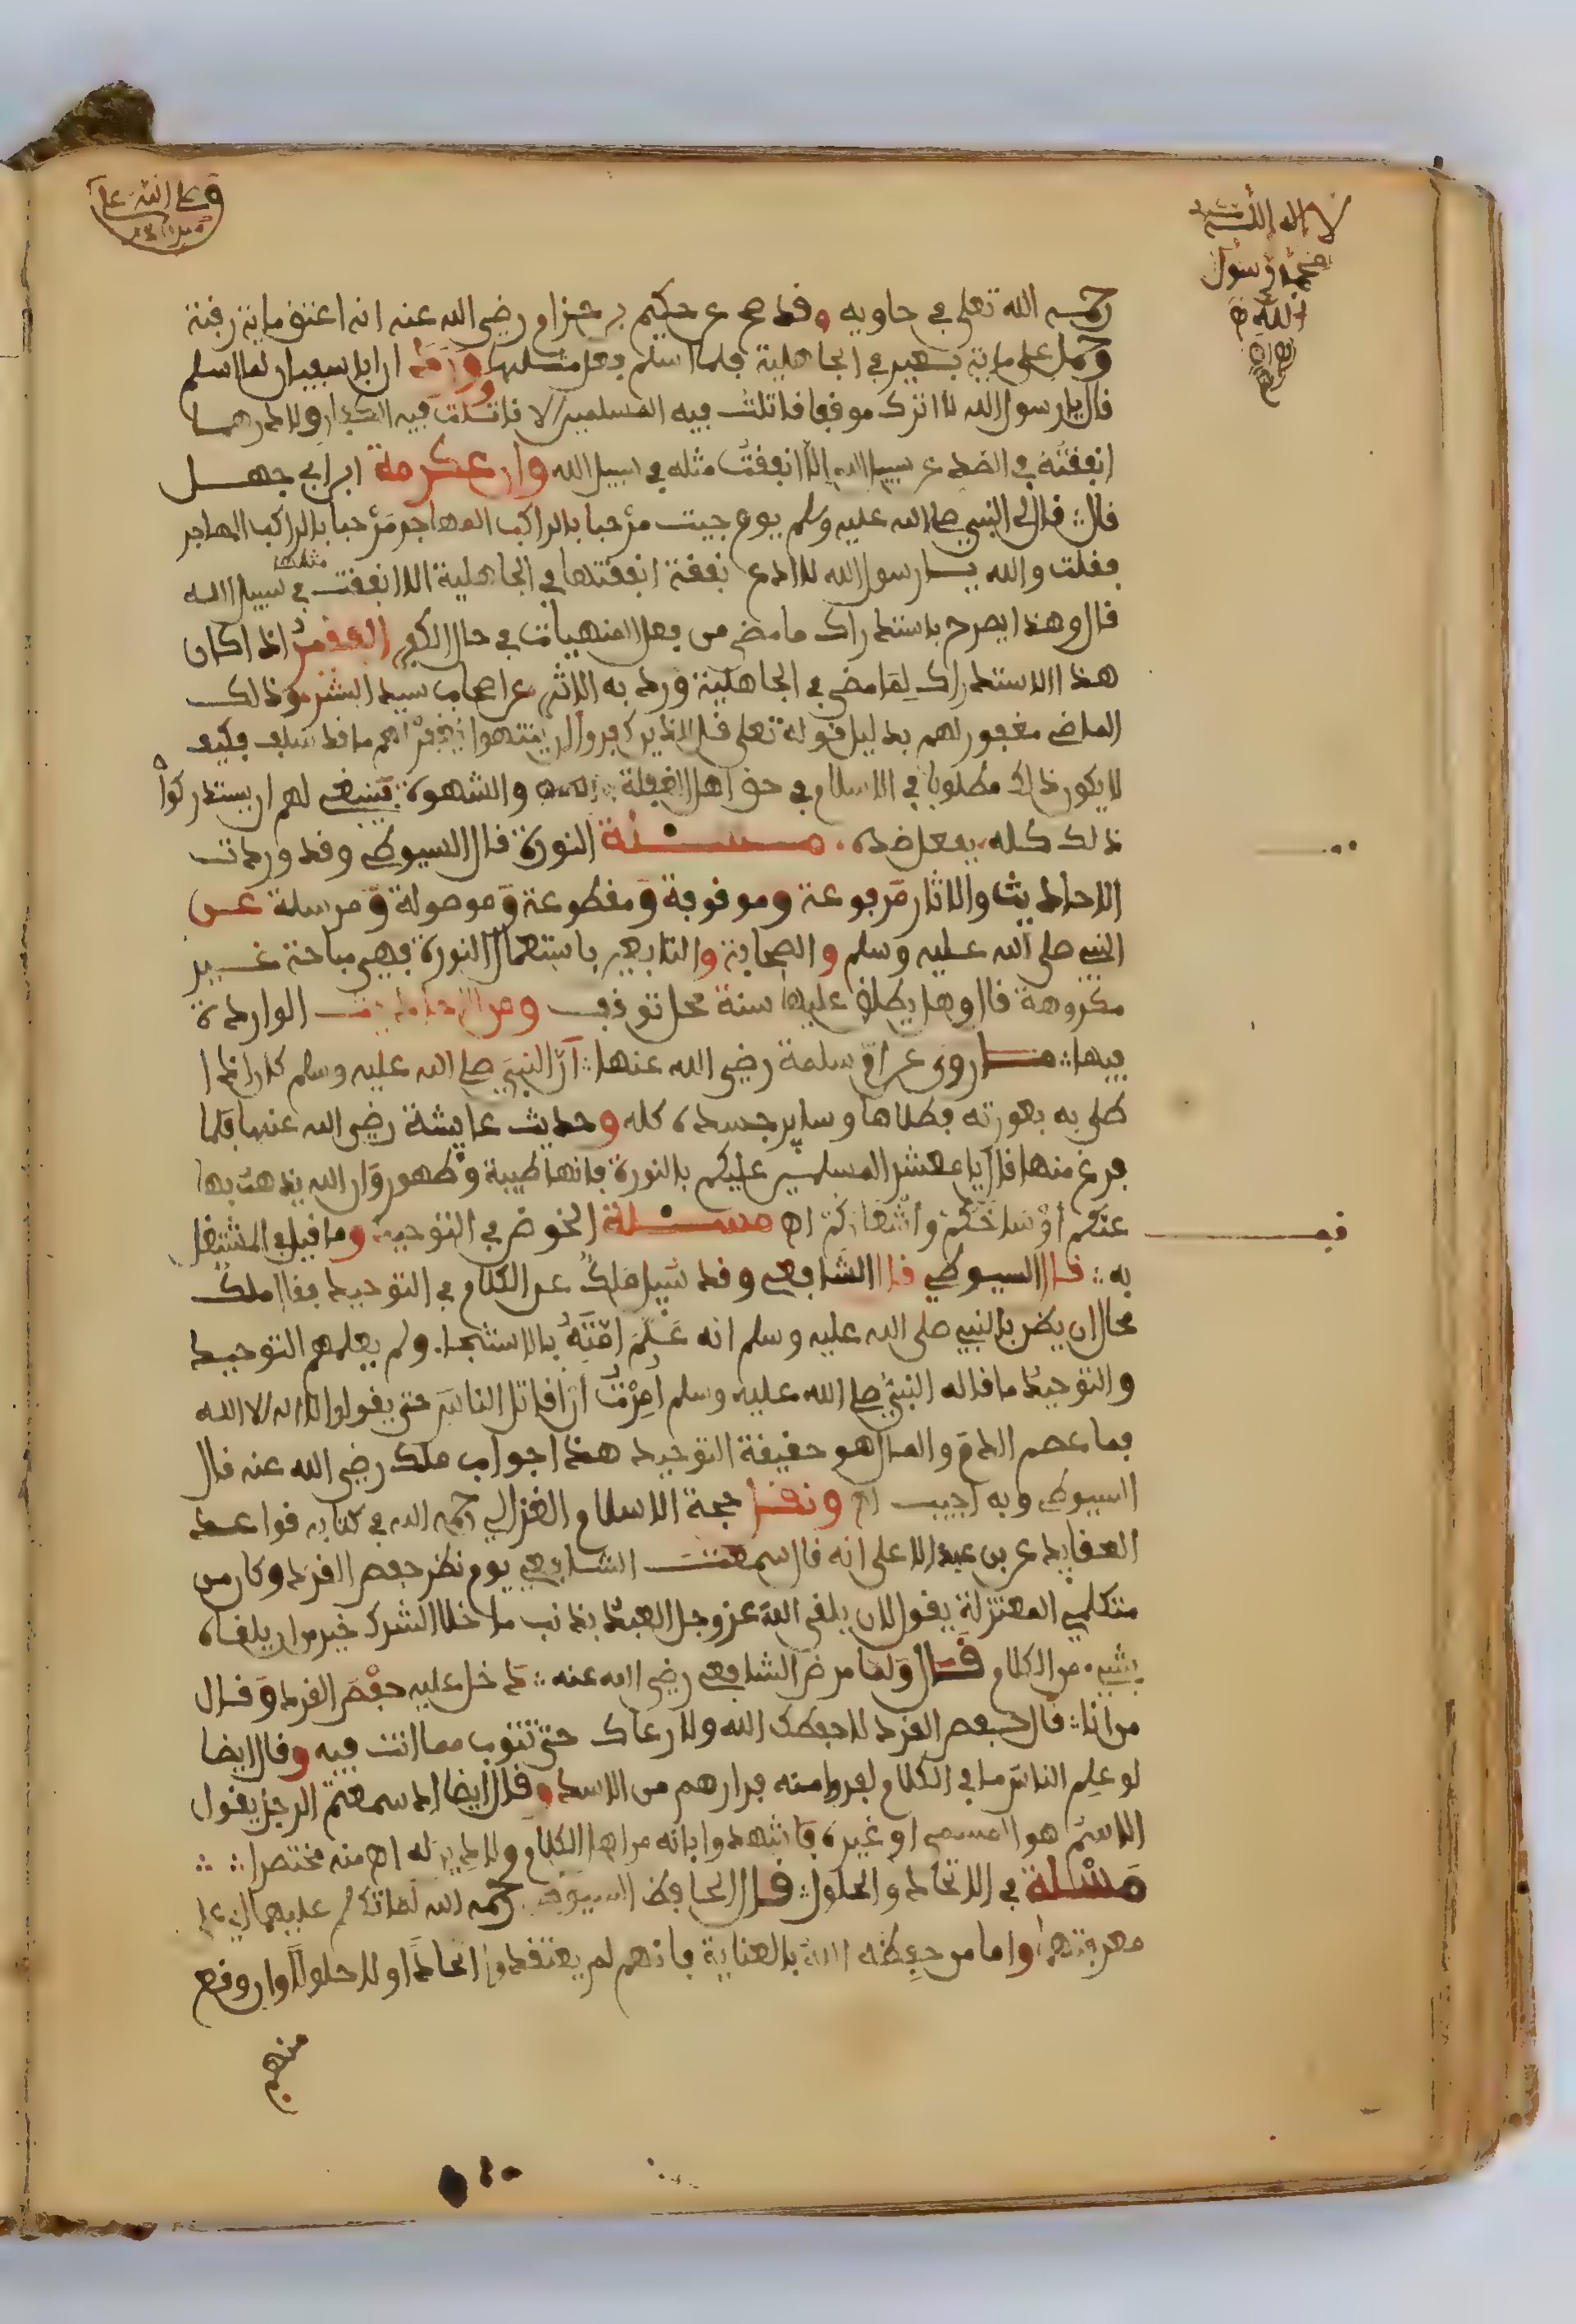 لا إله إلا الله
محمد رسول
الله
رحمه الله تعلى في حاويه وقد صح عن حكيم بن حزام رضي الله عنه انه اعتق ماية رقبة
وحمل على ماية بعير في الجاهلية فلما اسلم فعل مثلها وورد ان ابا سفيان لما اسلم
قال يا رسول الله لا اترك موقفا قاتلت فيه المسلمين إلا قاتلت فيه الكفار ولا درهما
انفقته في الصد عن سبيل الله إلا انفقت مثله في سبيل الله وان عكرمة ابن ابي جهل
قال قال لي النبي صلى الله عليه وسلم يوم جيت مرحبا بالراكب المهاجر مرحبا بالراكب المهاجر
فقلت والله يا رسول الله لا ادع نفقة انفقتها في الجاهلية الا انفقت مثلها في سبيل الله
قال وهذا يصرح باستدراك ما مضى من فعل المنهيات في حال الكفر اذا كان
هذا الاستدراك لما مضى في الجاهلية ورد به الاثر عن اصحاب سيد البشر وذلك
الماضي مغفور لهم بدليل قوله تعلى قل للذين كفروا إن ينتهوا يغفر لهم ما قد سلف فكيف
لا يكون ذلك مطلوبا في الاسلام في حق اهل الغفلة والشهوة فينبغي لهم ان يستدركوا
ذلك كله بفعل ضده مسئلة النورة قال السيوطي وقد وردت
الاحاديث والاثار مرفوعة وموقوفة ومقطوعة وموصولة ومرسلة عن
النبي صلى الله عليه وسلم والصحابة والتابعين باستعمال النورة فهي مباحة غير
مكروهة قال وهل يطلق عليها سنة محل توقف ومن الاحاديث الواردة
فيها ما روي عن ام سلمة رضي الله عنها أن النبي صلى الله عليه وسلم كان اذا
طلى به بعورته فطلاها وساير جسده كله وحديث عايشة رضي الله عنها فلما
فرغ منها قال يا معشر المسلمين عليكم بالنورة فانها طيبة وطهور وان الله يذهب بها
عنكم أوساخكم وأشعاركم اه مسئلة الخوض في التوحيد وما قيل في المشتغل
به قال السيوطي قال الشافعي وقد سيل ملك عن الكلام في التوحيد فقال ملك
محال ان يظن بالنبي صلى الله عليه وسلم انه علم امته بالاستنجاء ولم يعلمهم التوحيد
والتوحيد ما قاله النبي صلى الله عليه وسلم أمرت أن اقاتل الناس حتى يقولوا لا اله الا الله
فما عصم الدم والمال هو حقيقة التوحيد هذا جواب ملك رضي الله عنه قال
السيوطي وبه اجيب اه ونقل حجة الاسلام الغزالي رحمه الله في كتابه قواعد
العقايد عن بن عبد الاعلى انه قال سمعت الشافعي يوم نظر حفص الفرد وكان من
متكلمي المعتزلة يقول لان يلقى الله عز وجل العبد بذنب ما خلا الشرك خير من ان يلقاه
بشيء من الكلام قال ولما مرض الشافعي رضي الله عنه دخل عليه حفص الفرد وقال
من انا قال حفص الفرد لا حفظك الله ولا رعاك حتى تتوب مما انت فيه وقال ايضا
لو علم الناس ما في الكلام لفروا منه فرارهم من الاسد وقال ايضا اذا سمعتم الرجل يقول
الاسم هو المسمى او غيره فاشهدوا بانه من اهل الكلام ولا دين له اه منه مختصرا
مسئلة في الاتحاد والحلول قال الحافظ السيوطي رحمه الله لما تكلم عليهما
معرفتهما واما من حفظه الله بالعناية فانهم لم يعتقدوا اتحادا ولا حلولا وان وقع
منهم